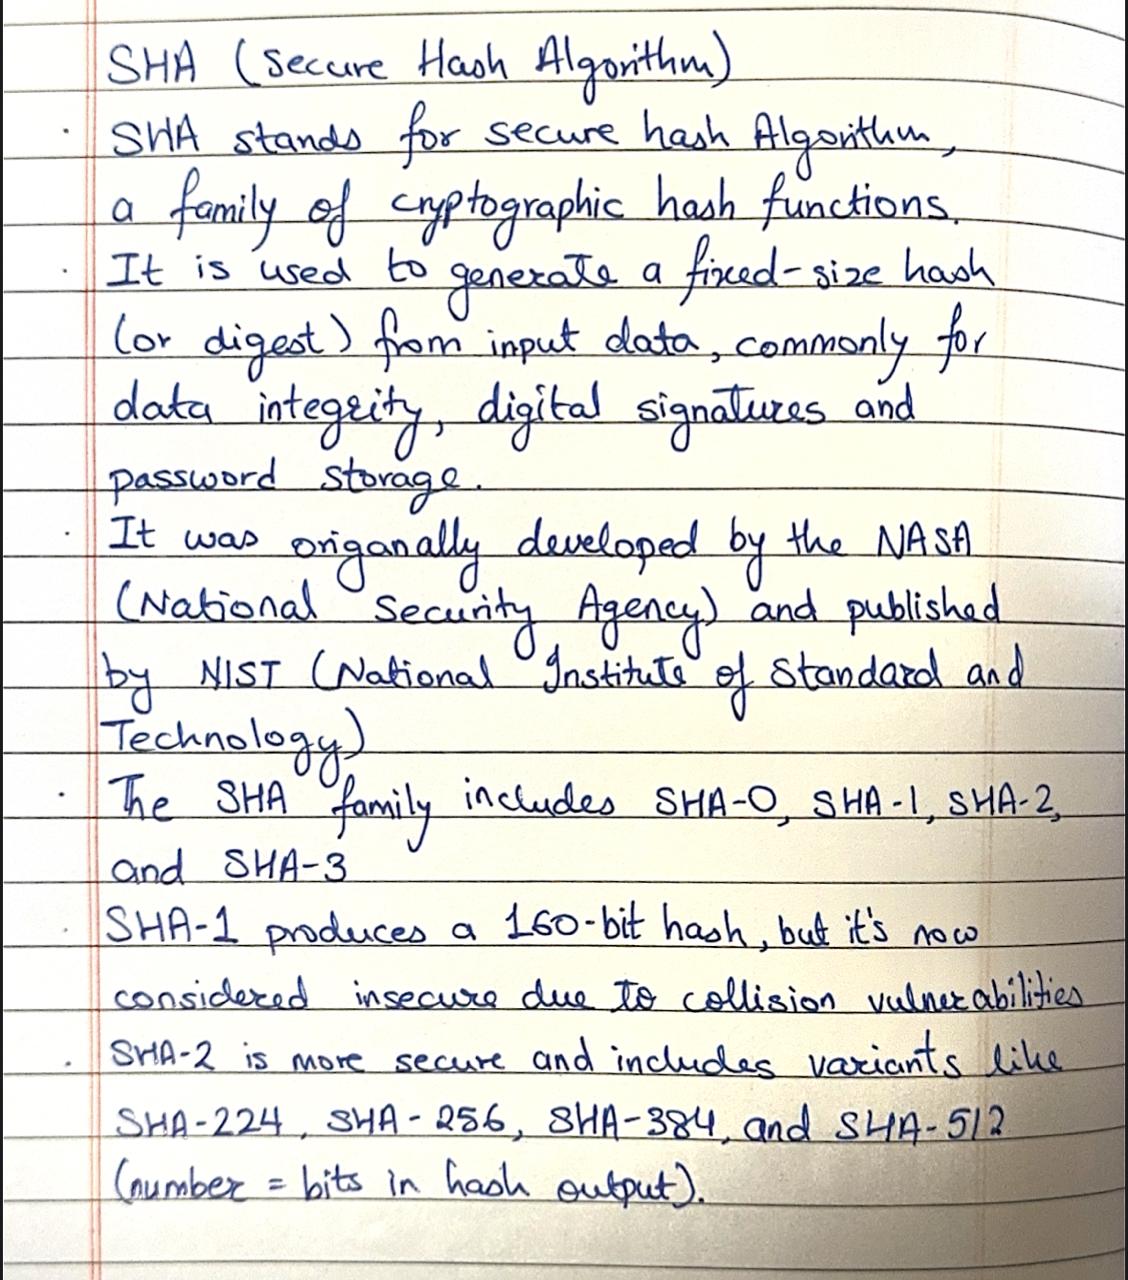 SHA (Secure Hash Algorithm)
· SHA stands for secure hash Algorithm,
a family of cryptographic hash functions.
· It is used to generate a fixed-size hash
(or digest) from input data, commonly for
data integrity, digital signatures and
password storage.
· It was origanally developed by the NASA
(National Security Agency) and published
by NIST (National Institute of Standard and
Technology)
· The SHA family includes SHA-0, SHA-1, SHA-2,
and SHA-3
· SHA-1 produces a 160-bit hash, but it's now
considered insecure due to collision vulnerabilities
· SHA-2 is more secure and includes variants like
SHA-224, SHA-256, SHA-384, and SHA-512
(number = bits in hash output).